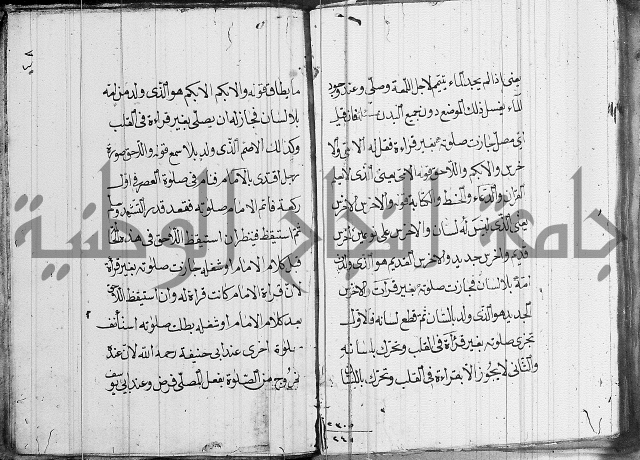 يعنى اذا لم يجد الماء يتيمم لاجل اللمعة وصلى وعند وجود
الماء يغسل ذلك الموضع دون جميع البدن فان قيل
اى مصل جازت صلوته بغير قراءة فقل له الامى والا
خرس والابكم واللاحق قوله الامى يعنى الذى لا يعلم
القران والدعاء والخط والكتابة قوله والاخرس الاخرس
يعنى الذى ليس له لسان والاخرس على نوعين اخرس
قديم واخرس جديد والاخرس القديم هو الذى ولد من
امه بلا لسان فجازت صلوته بغير قرات والاخرس
الجديد هو الذى ولد باللسان ثم قطع لسانه فالاول
تجزى صلوته بغير قرأة فى القلب وتحرك بلسانه
والثانى لا يجوز الا بقراءة فى القلب وتحرك باللسان
ما يطاق قوله والابكم الابكم هو الذى ولد من امه
بلا لسان فجاز له ان يصلى بغير قراءة فى القلب
وكذلك الاصم الذى ولد بلا سمع قوله واللاحق صورة
رجل اقتدى بالامام فنام فى صلوة العصر فى اول
ركعة فاتم الامام صلوته فقعد قدر التشهد وسلم
ثم استيقظ فنظر ان استيقظ اللاحق فى هذه
قبل كلام الامام او شغله جازت صلوته بغير قرأة
لان قرأة الامام كانت قراءة له وان استيقظ اللاحق
بعد كلام الامام او شغله بطلت صلوته استأنف
صلوة اخرى عند ابى حنيفة رحمه الله لان عنده
خروج من الصلوة بفعل المصلى فرض وعند ابى يوسف
جامعة النجاح الوطنية